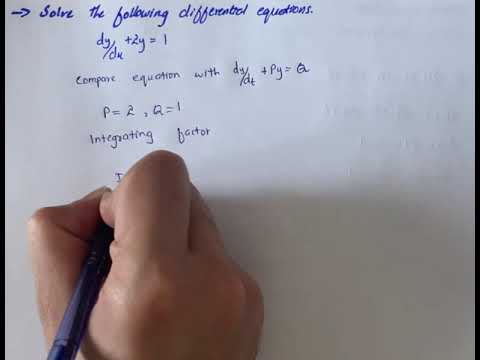 → Solve the following differential equations.
dy/dx + 2y = 1
Compare equation with dy/dt + Py = Q
P = 2 , Q = 1
Integrating factor
I